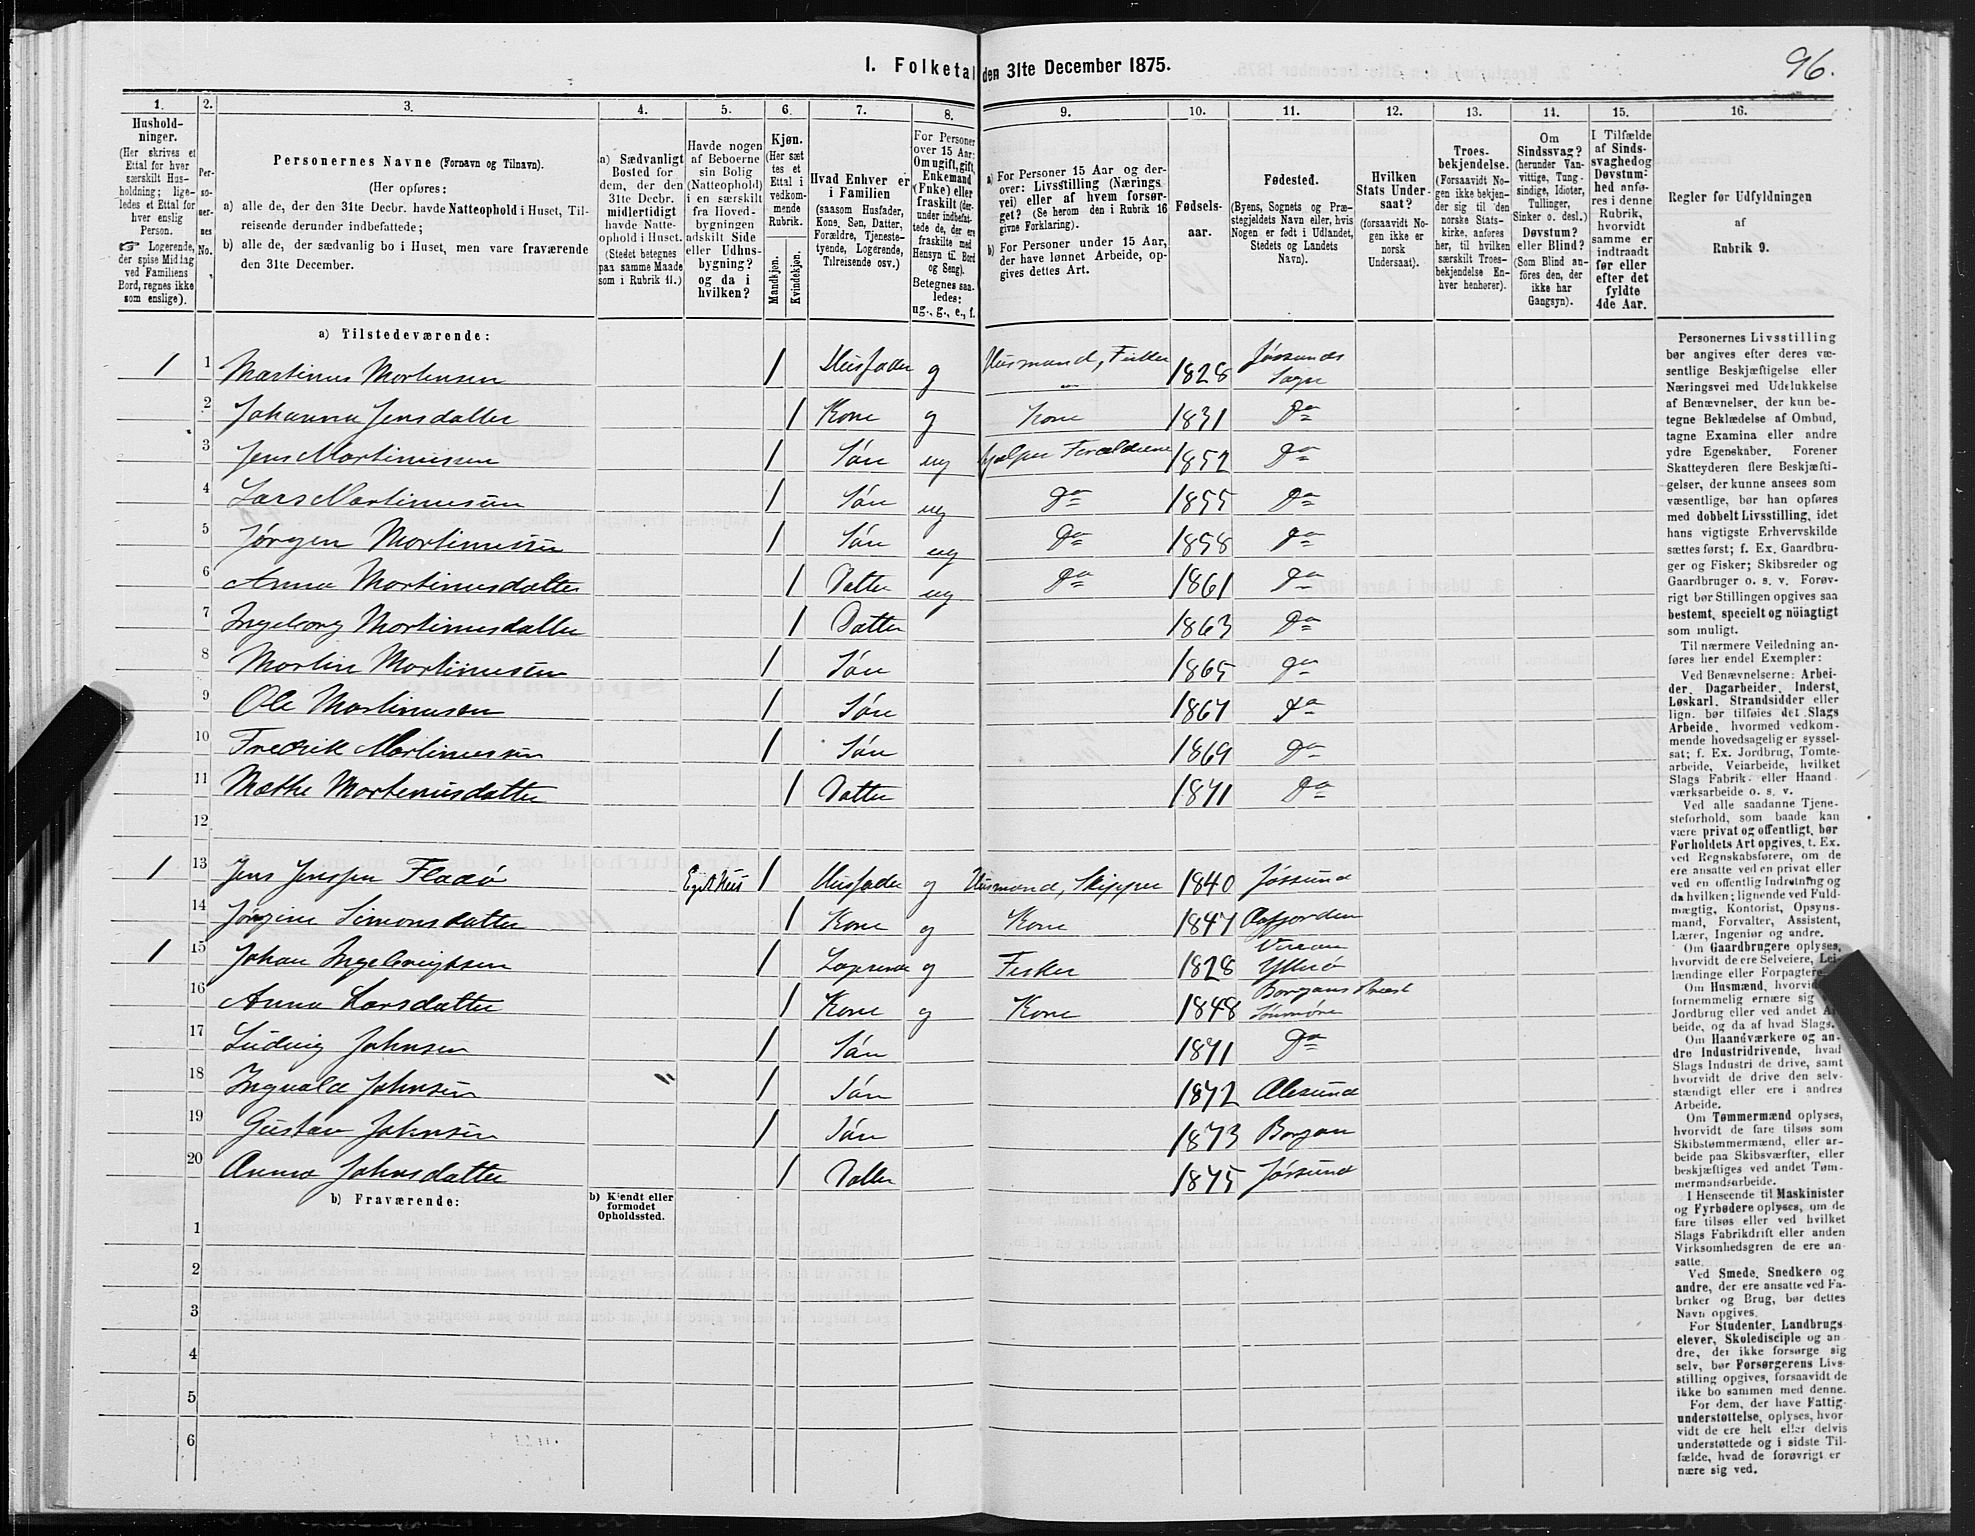 96.
I. Folketal den 31te December 1875.
1. 2. 3. 4. 5. 6. 7. 8. 9. 10. 11. 12. 13. 14. 15. 16.
Hushold-
ninger.
(Her skrives et
Ettal for hver
særskilt Hus-
holdning; lige-
ledes et Ettal for
hver enslig
Person.
☞ Logerende,
der spise Middag
ved Familiens
Bord, regnes ikke
som enslige).
Per-
so-
ner-
nes
No.
Personernes Navne (Fornavn og Tilnavn).
(Her opføres:
a) alle de, der den 31te Decbr. havde Natteophold i Huset, Til-
reisende derunder indbefattede;
b) alle de, der sædvanlig bo i Huset, men vare fraværende
den 31te December.
a) Sædvanligt
Bosted for
dem, der den
31te Decbr.
midlertidigt
havde Natte-
ophold i Huset.
(Stedet betegnes
paa samme Maade
som i Rubrik 11.)
Havde nogen
af Beboerne
sin Bolig
(Natteophold)
i en særskilt
fra Hoved-
bygningen
adskilt Side
eller Udhus-
bygning?
og da i
hvilken?
Kjøn.
(Her sæt
tes et
Ettal i
vedkom-
mende
Rubrik.
Mandkjøn.
Kvindekjøn.
Hvad Enhver er
i Familien
(saasom Husfader,
Kone, Søn, Datter,
Forældre, Tjeneste-
tyende, Logerende,
Tilreisende osv.)
For Personer
over 15 Aar:
Om ugift, gift,
Enkemand
(Enke) eller
fraskilt (der-
under indbefat-
tede de, der ere
fraskilte med
Hensyn til Bord
og Seng).
Betegnes saa-
ledes:
ug., g., e., f.
a) For Personer 15 Aar og der-
over: Livsstilling (Nærings
vei) eller af hvem forsør-
get? (Se herom den i Rubrik 16
givne Forklaring).
b) For Personer under 15 Aar,
der have lønnet Arbeide, op-
gives dettes Art.
Fødsels-
aar.
Fødested.
(Byens, Sognets og Præ-
stegjeldets Navn eller, hvis
Nogen er født i Udlandet,
Stedets og Landets
Navn).
Hvilken
Stats Under-
saat?
(forsaavidt No-
gen ikke er
norsk
Undersaat).
Troes-
bekjendelse.
(Forsaavidt No-
gen ikke bekjen-
der sig til den
norske Stats-
kirke, anføres
her, til hvilken
særskilt Troes-
bekjendelse En-
hver henhører).
Om
Sindssvag?
(herunder Van-
vittige, Tung-
sindige, Idioter,
Tullinger,
Sinker o. desl.)
Døvstum?
eller Blind?
(Som Blind an-
føres den, der
ikke har
Gangsyn).
I Tilfælde
af Sinds-
svaghed og
Døvstum-
hed anfø-
res i denne
Rubrik,
hvorvidt
samme er
indtraadt
før eller
efter det
fyldte
4de Aar.
Regler før Udfyldningen
af
Rubrik 9.
a) Tilstedeværende:
1 1 Martinus Mortensen 1 Husfader g Husmand, Fisker 1828 Jøssunds
Sogn
2 Johanna Jensdatter 1 Kone g Kone 1831 Do
3 Jens Martinussen 1 Søn ug hjælper Forældrene 1852 Do
4 Lars Martinussen 1 Søn ug Do 1855 Do
5 Jørgen Martinussen 1 Søn ug Do 1858 Do
6 Anna Martinusdatter 1 Datter ug Do 1861 Do
7 Ingeborg Martinusdatter 1 Datter 1863 Do
8 Martin Martinussen 1 Søn 1865 Do
9 Ole Martinussen 1 Søn 1867 Do
10 Fredrik Martinussen 1 Søn 1869 Do
11 Mæthe Martinusdatter 1 Datter 1871 Do
12
1 13 Jens Jenssen Fladø Eget Huus 1 Husfader g Husmand, Skipper 1840 Jøssund
14 Jørgine Simonsdatter 1 Kone g Kone 1847 Aafjorden
1 15 Johan Ingebrigtsen 1 Logerende g Fisker 1828 Ytterø
16 Anna Larsdatter 1 Kone g Kone 1848 Borgans Præst
Sønmøre
17 Ludvig Johnsen 1 Søn 1871 Do
18 Ingvald Johnsen " 1 Søn 1872 Alesund
19 Gustav Johnsen 1 Søn 1873 Borgan
20 Anna Johnsdatter 1 Datter 1875 Jøssund
b) Fraværende:
b) Kjendt eller
formodet
Opholdssted.
1
2
3
4
5
6
Personernes Livsstilling
bør angives efter deres væ-
sentlige Beskjæftigelse eller
Næringsvei med Udelukkelse
af Benævnelser, der kun be-
tegne Beklædelse af Ombud,
tagne Examina eller andre
ydre Egenskaber. Forener
Skatteyderen flere Beskjæfti-
gelser, der kunne ansees som
væsentlige, bør han opføres
med dobbelt Livsstilling, idet
hans vigtigste Erhvervskilde
sættes først; f. Ex. Gaardbru-
ger og Fisker; Skibsreder og
Gaardbruger o. s. v. Forøv-
rigt bør Stillingen opgives saa
bestemt, specielt og nöiagtigt
som muligt.
Til nærmere Veiledning an-
føres her endel Exempler:
Ved Benævnelserne: Arbei-
der, Dagarbeider, Inderst,
Løskarl, Strandsidder eller
lign. bør tilføies det Slags
Arbeide, hvormed vedkom-
mende hovedsagelig er syssel-
sat; f. Ex. Jordbrug, Tomte-
arbeide, Veiarbeide, hvilket
Slags Fabrik- eller Haand-
værksarbeide o. s. v.
Ved alle saadanne Tjene-
steforhold, som baade kan
være privat og offentligt, bør
Forholdets Art opgives, t. Ex.
ved Regnskabsførere, om de
ere ansatte ved en privat eller
ved en offentlig Indretning og
da hvilken; lignende ved Fuld-
mægtig, Kontorist, Opsyns-
mand, Forvalter, Assistent,
Lærer, Ingeniør og andre.
Om Gaardbrugere oplyses,
hvorvidt de ere Selveiere, Lei-
lændinge eller Forpagtere
Om Husmænd, hvorvidt
fornemmelig ernære sig
Jordbrug eller ved andet Ar-
beide, og da af hvad Slags.
Om Haandværkere og an-
dre Industridrivende, hvad
Slags Industri de drive, samt
hvorvidt de drive den selv-
stændigt eller ere i andres
Arbeide.
Om Tømmermænd oplyses,
hvorvidt de fare tilsøs som
Skibstømmermænd, eller ar-
beide paa Skibsværfter, eller
beskjæftiges ved andet Tøm-
mermandsarbeide.
I Henseende til Maskinister
og Fyrbødere oplyses, om de
fare tilsøs eller ved hvilket
Slags Fabrikdrift eller anden
Virksomhedsgren de ere an-
satte.
Ved Smede, Snedkere og
andre, der ere ansatte ved Fa-
briker og Brug, bør dettes
Navn opgives.
For Studenter, Landbrugs-
elever, Skoledisciple og an-
dre, der ikke forsørge sig
selv, bør Forsørgerens Livs-
stilling opgives, forsaavidt de
ikke bo sammen med denne.
For dem, der have Fattig-
understøttelse, oplyses, hvor-
vidt de ere helt eller delvis
understøttede og i sidste Til-
fælde, hvad de forøvrigt er-
nære sig ved.